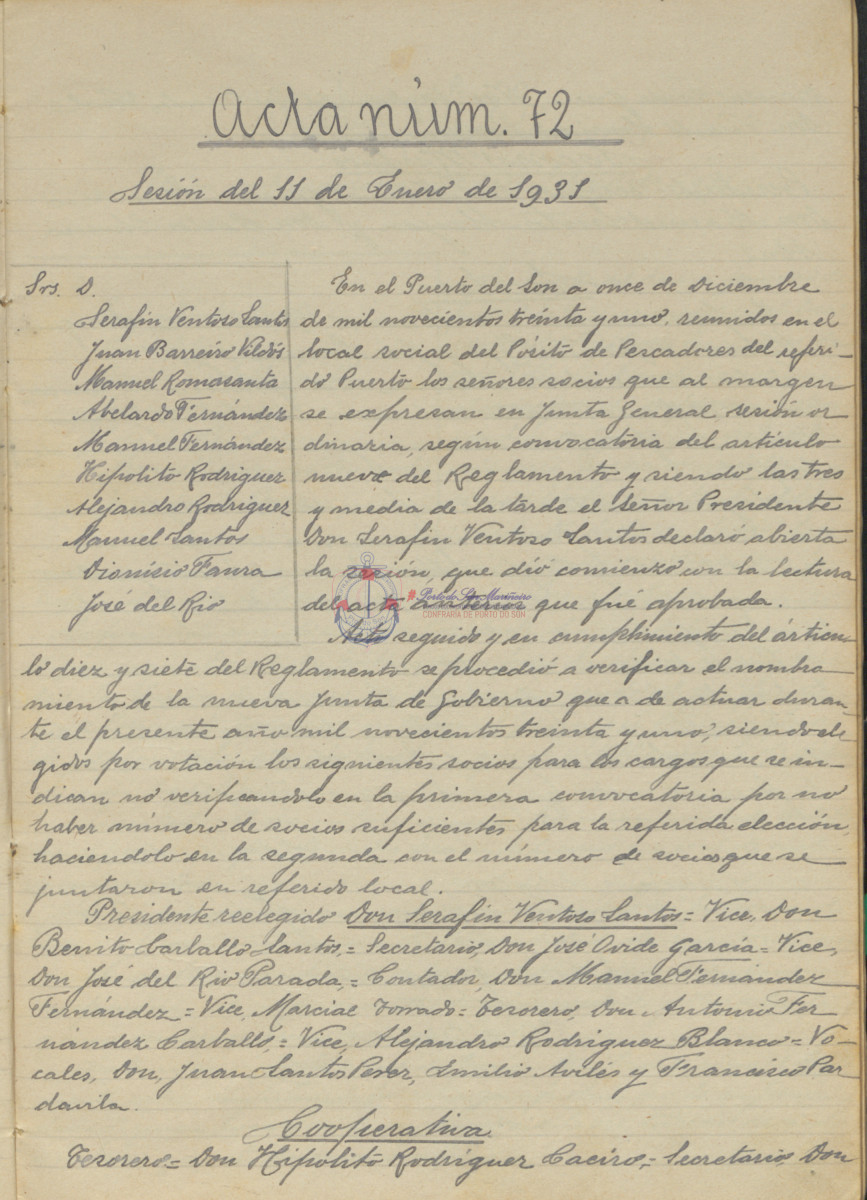 Acta núm. 72
Sesión del 11 de Enero de 1931
Srs. D.
Serafin Ventoso Santos
Juan Barreiro Vildós
Manuel Romasanta
Abelardo Fernández
Manuel Fernández
Hipolito Rodriguez
Alejandro Rodriguez
Manuel Santos
Dionisio Faura
José del Rio
En el Puerto del Son a once de Diciembre
de mil novecientos treinta y uno, reunidos en el
local social del Pósito de Pescadores del referi-
do Puerto los señores socios que al margen
se expresan en Junta General sesión or
dinaria, según convocatoria del artículo
nueve del Reglamento y siendo las tres
y media de la tarde el Señor Presidente
Don Serafin Ventoso Santos declaró abierta
la sesión, que dió comienzo con la lectura
del acta anterior que fué aprobada.
Acto seguido y en cumplimiento del articu-
lo diez y siete del Reglamento se procedió a verificar el nombra
miento de la nueva Junta de Gobierno que a de actuar duran-
te el presente año mil novecientos treinta y uno, siendo ele
gidos por votación los siguientes socios para los cargos que se in-
dican no verificandolo en la primera convocatoria por no
haber número de socios suficientes para la referida elección,
haciendolo en la segunda con el número de socios que se
juntaron en referido local.
Presidente reelegido Don Serafin Ventoso Santos = Vice, Don
Benito Carballo Santos, = Secretario, Don José Ovide García = Vice,
Don José del Rio Parada, = Contador, Don Manuel Fernández
Fernández = Vice, Marcial Torrado = Tesorero, Don Antonio Fer
nández Carballo, = Vice, Alejandro Rodriguez Blanco = Vo-
cales, Don, Juan Santos Perez, Emilio Avilés y Francisco Par
davila.
Cooperativa
Tesorero = Don Hipolito Rodríguez Caeiro, = Secretario, Don
CONFRARIA DE PORTO DO SON